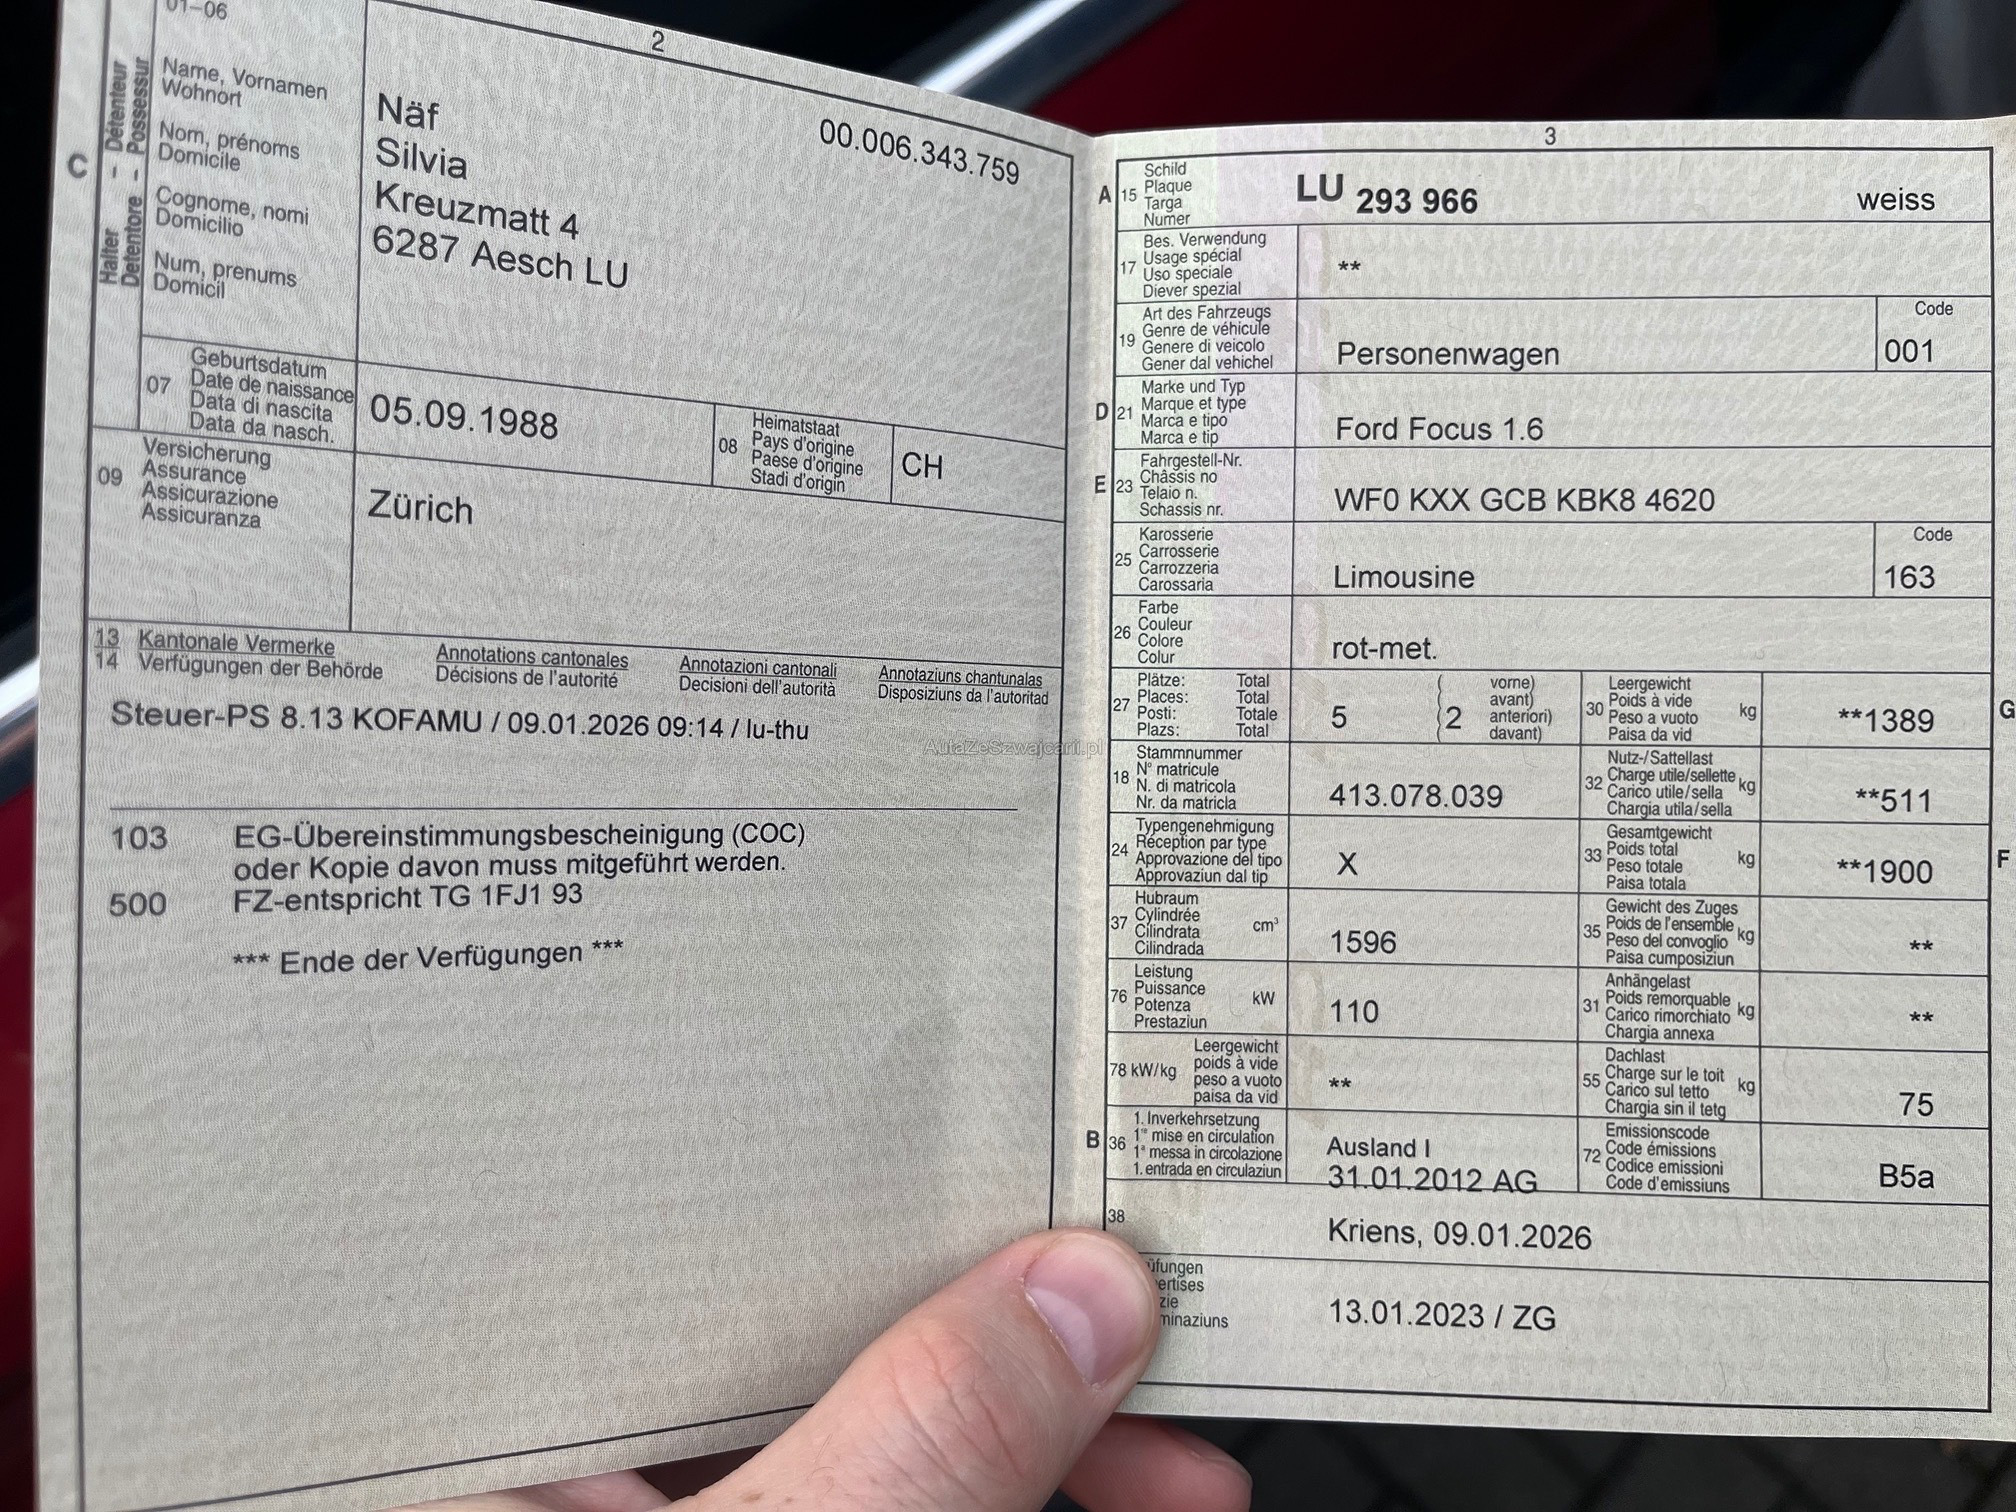 2
01-06
C
Halter – Détenteur
Detentore – Possessur
Name, Vornamen
Wohnort
Nom, prénoms
Domicile
Cognome, nomi
Domicilio
Num, prenums
Domicil
Näf
Silvia
Kreuzmatt 4
6287 Aesch LU
00.006.343.759
07
Geburtsdatum
Date de naissance
Data di nascita
Data da nasch.
05.09.1988
08
Heimatstaat
Pays d'origine
Paese d'origine
Stadi d'origin
CH
09
Versicherung
Assurance
Assicurazione
Assicuranza
Zürich
13 Kantonale Vermerke Annotations cantonales Annotazioni cantonali Annotaziuns chantunalas
14 Verfügungen der Behörde Décisions de l'autorité Decisioni dell'autorità Disposiziuns da l'autoritad
Steuer-PS 8.13 KOFAMU / 09.01.2026 09:14 / lu-thu
AutaZeSzwajcarii.pl
103 EG-Übereinstimmungsbescheinigung (COC)
oder Kopie davon muss mitgeführt werden.
500 FZ-entspricht TG 1FJ1 93
*** Ende der Verfügungen ***
3
A 15
Schild
Plaque
Targa
Numer
LU 293 966 weiss
17
Bes. Verwendung
Usage spécial
Uso speciale
Diever spezial
**
19
Art des Fahrzeugs
Genre de véhicule
Genere di veicolo
Gener dal vehichel
Personenwagen
Code
001
D 21
Marke und Typ
Marque et type
Marca e tipo
Marca e tip
Ford Focus 1.6
E 23
Fahrgestell-Nr.
Châssis no
Telaio n.
Schassis nr.
WF0 KXX GCB KBK8 4620
25
Karosserie
Carrosserie
Carrozzeria
Carossaria
Limousine
Code
163
26
Farbe
Couleur
Colore
Colur
rot-met.
27
Plätze: Total
Places: Total
Posti: Totale
Plazs: Total
5
(2
vorne)
avant)
anteriori)
davant)
30
Leergewicht
Poids à vide
Peso a vuoto
Paisa da vid
kg
**1389
G
18
Stammnummer
N° matricule
N. di matricola
Nr. da matricla
413.078.039
32
Nutz-/Sattellast
Charge utile/sellette
Carico utile/sella
Chargia utila/sella
kg
**511
24
Typengenehmigung
Réception par type
Approvazione del tipo
Approvaziun dal tip
X
33
Gesamtgewicht
Poids total
Peso totale
Paisa totala
kg
**1900
F
37
Hubraum
Cylindrée
Cilindrata
Cilindrada
cm³
1596
35
Gewicht des Zuges
Poids de l'ensemble
Peso del convoglio
Paisa cumposiziun
kg
**
76
Leistung
Puissance
Potenza
Prestaziun
kW
110
31
Anhängelast
Poids remorquable
Carico rimorchiato
Chargia annexa
kg
**
78 kW/kg
Leergewicht
poids à vide
peso a vuoto
paisa da vid
**
55
Dachlast
Charge sur le toit
Carico sul tetto
Chargia sin il tetg
kg
75
B 36
1. Inverkehrsetzung
1re mise en circulation
1a messa in circolazione
1. entrada en circulaziun
Ausland I
31.01.2012 AG
72
Emissionscode
Code émissions
Codice emissioni
Code d'emissiuns
B5a
38
Kriens, 09.01.2026
13.01.2023 / ZG